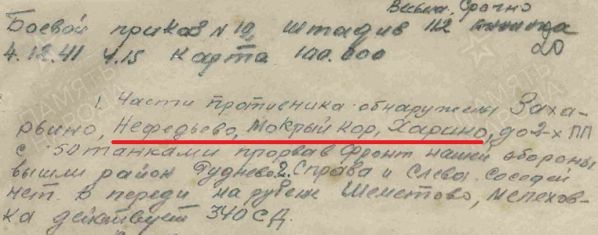 Весьма. Срочно
Боевой приказ N 10, штадив 112
4.12.41 4.15 Карта 100.000 20
1. Части противника обнаружены Заха-
рьино, Нефедьево, Мокрый кор, Харино, до 2-х ПП
с 50 танками прорвав фронт нашей обороны
вышли район Гуднево. Справа и Слева соседей
нет. в переди на рубеже Шеметово, Мелехов-
ка действует 340 СД.
ПАМЯТЬ
НАРОДА